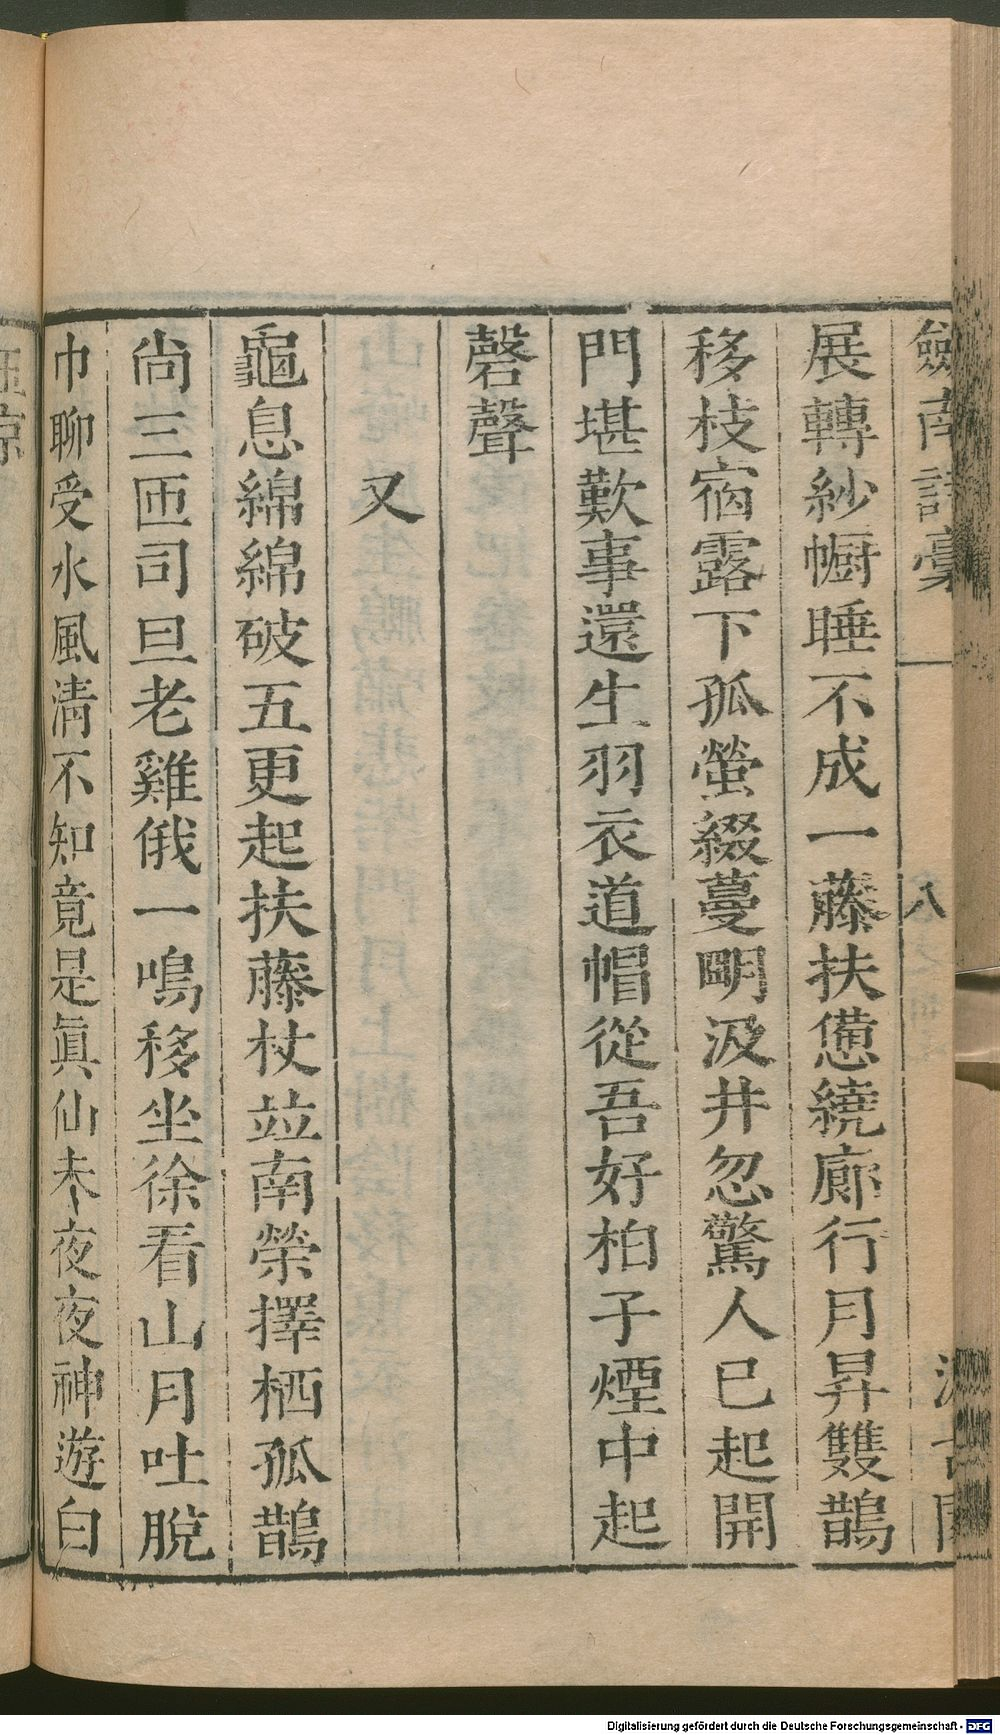 劍南詩稾
八
展轉紗幮睡不成一藤扶憊繞廊行月昇雙鵲
移枝宿露下孤螢綴蔓明汲井忽驚人已起開
門堪歎事還生羽衣道帽從吾好柏子煙中起
磬聲
又
龜息綿綿破五更起扶藤杖竝南榮擇栖孤鵲
尚三匝司旦老雞俄一鳴移坐徐看山月吐脫
巾聊受水風清不知竟是眞仙未夜夜神遊白
Digitalisierung gefördert durch die Deutsche Forschungsgemeinschaft - DFG